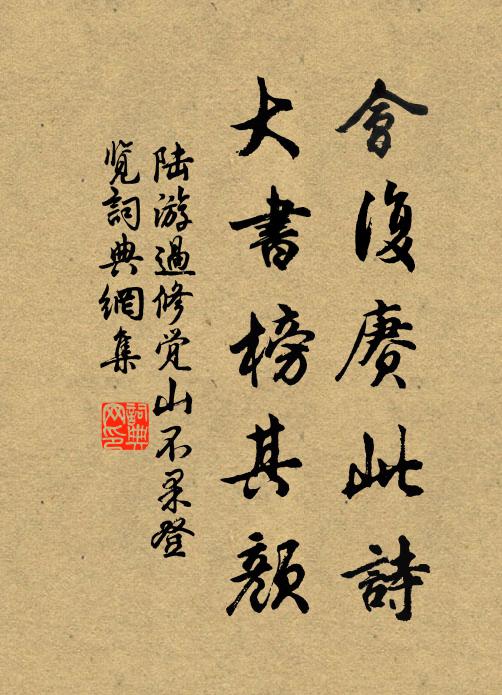 會復賡此詩
大書榜其顏
陆游過修觉山不果登
览詞典網集
詞典网印